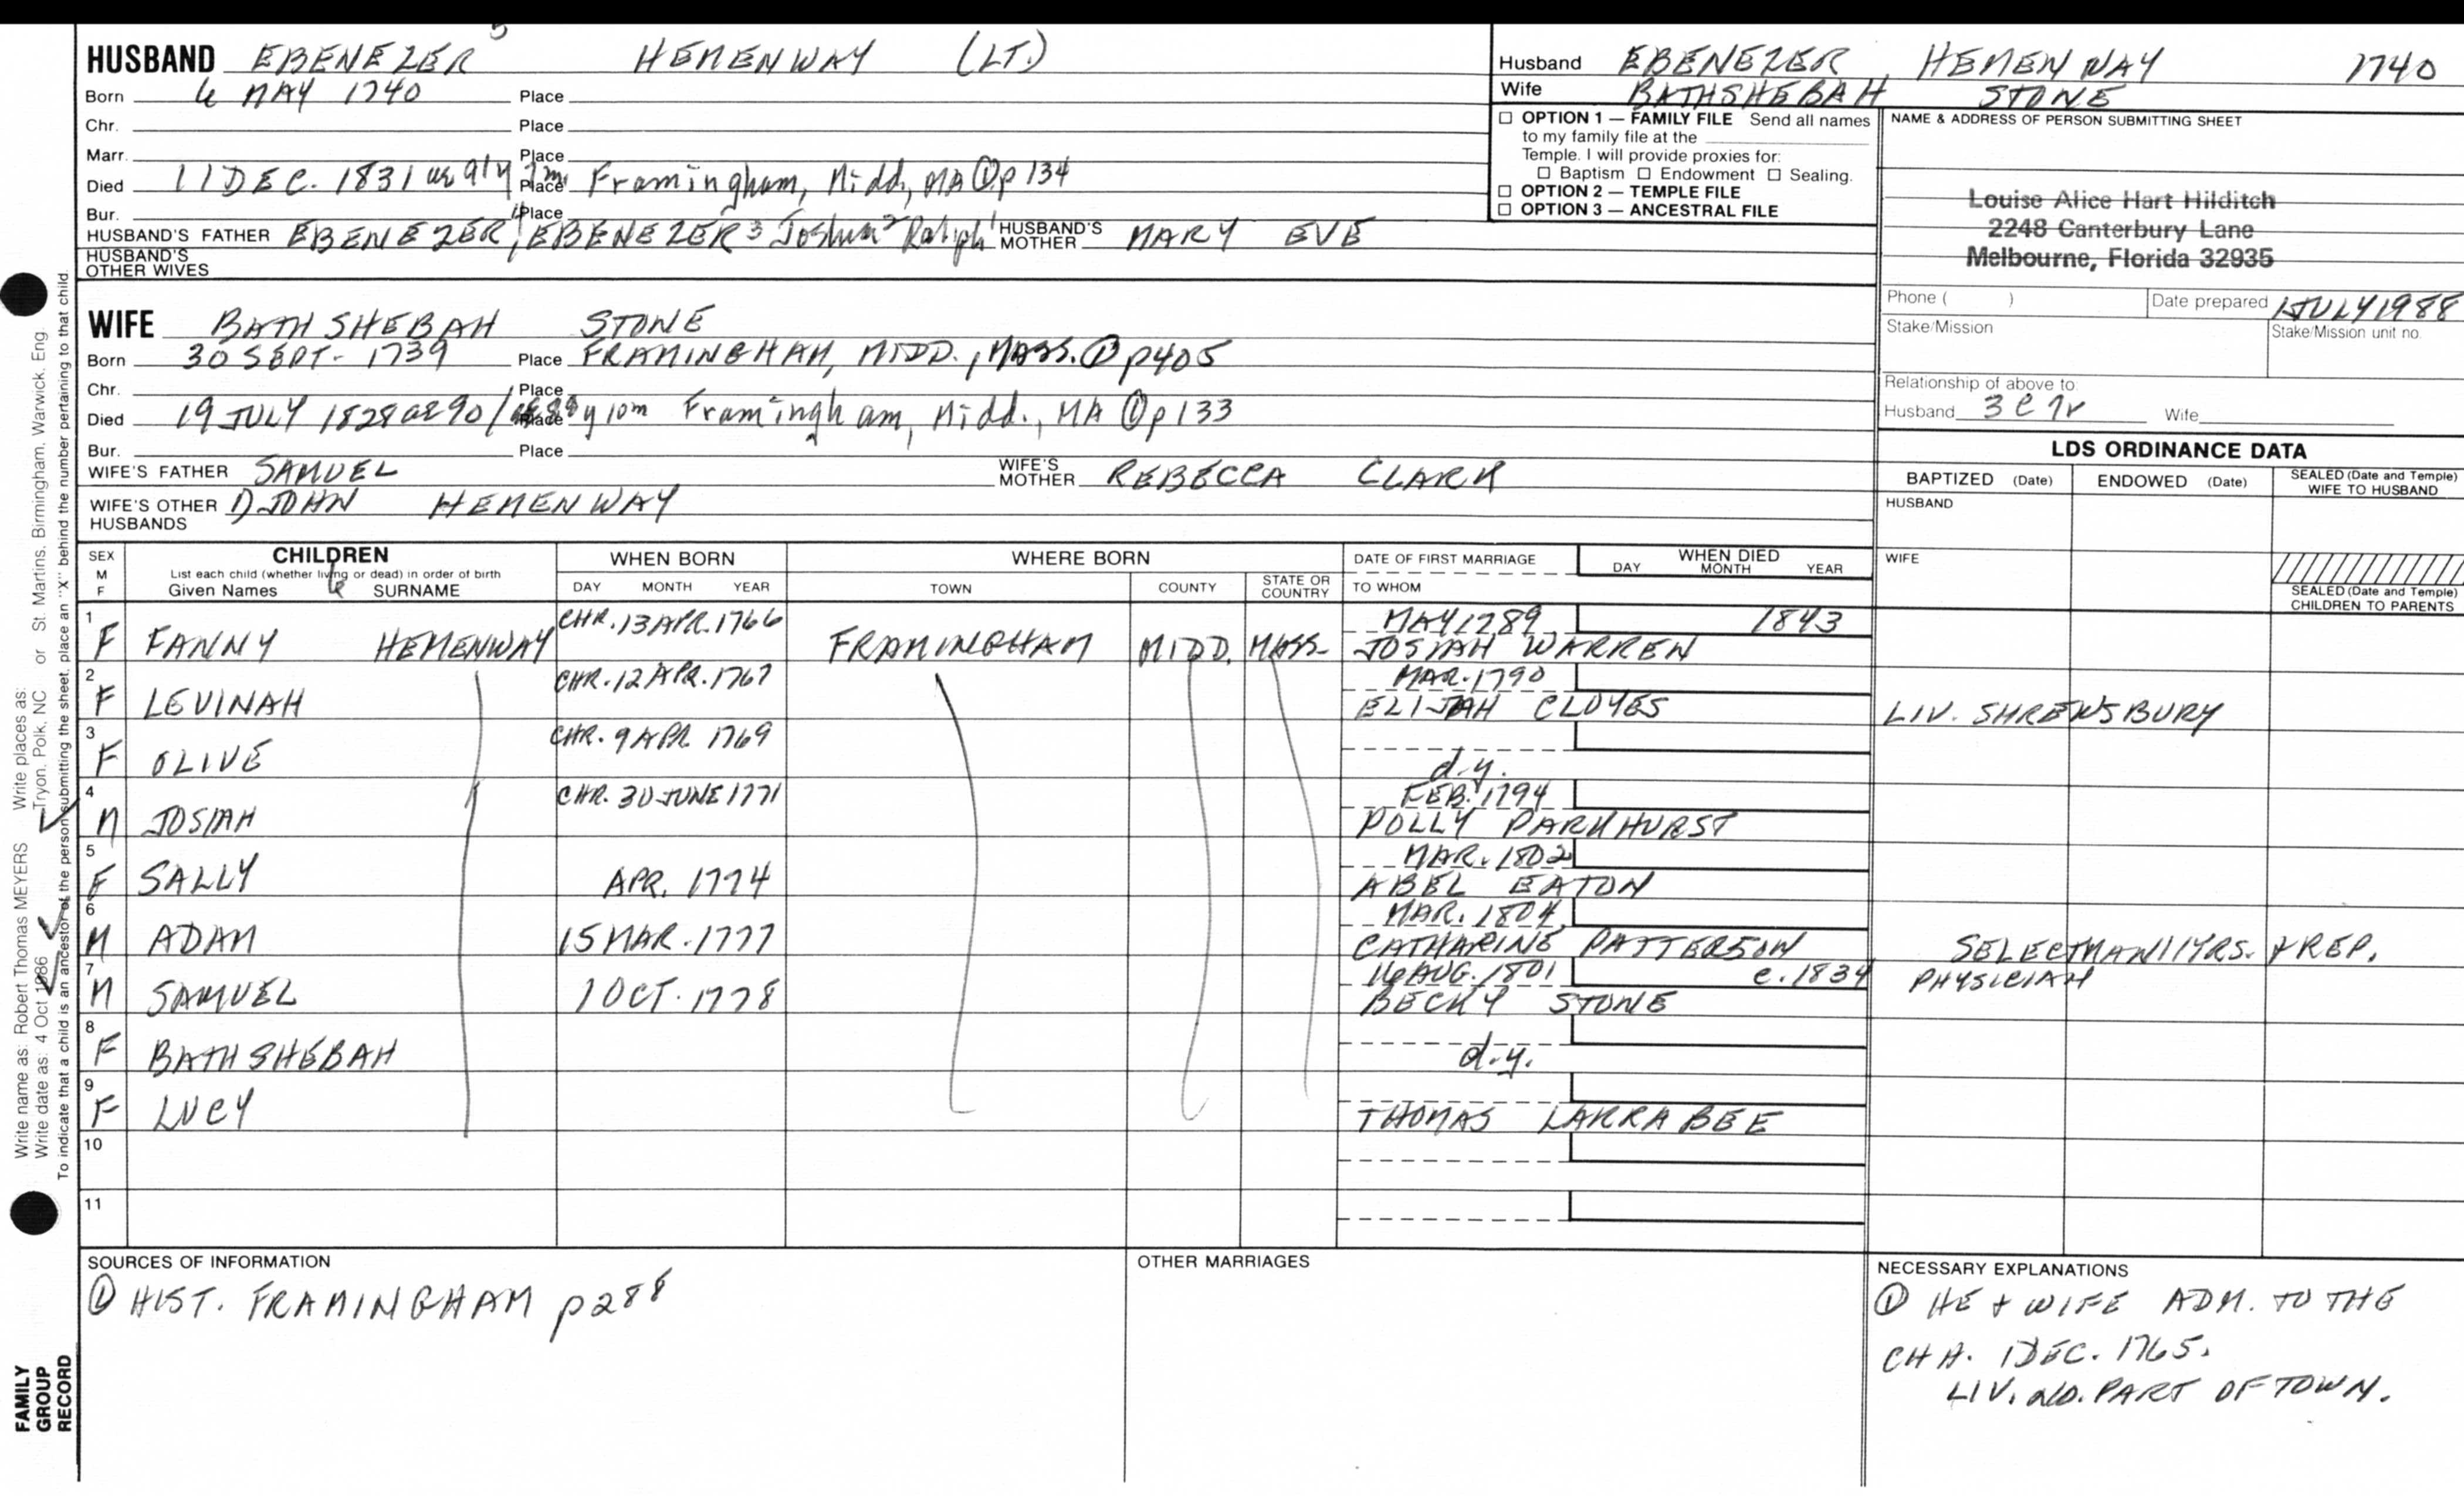 HUSBAND EBENEZER 5 HEMENWAY (LT.)
Born 6 MAY 1740 Place
Chr. Place
Marr. Place
Died 11 DEC. 1831 ae 91y 7m Place Framingham, Midd., MA ① p 134
Bur. Place
HUSBAND'S FATHER EBENEZER 4, EBENEZER 3 Joshua 2 Ralph 1 HUSBAND'S MOTHER MARY EVE
HUSBAND'S OTHER WIVES
WIFE BATHSHEBAH STONE
Born 30 SEPT. 1739 Place FRAMINGHAM, MIDD., MASS. ① p405
Chr. Place
Died 19 JULY 1828 ae 90/ y 10m Place Framingham, Midd., MA ① p 133
Bur. Place
WIFE'S FATHER SAMUEL WIFE'S MOTHER REBECCA CLARK
WIFE'S OTHER HUSBANDS 1) JOHN HEMENWAY
Husband EBENEZER HEMENWAY 1740
Wife BATHSHEBAH STONE
☐ OPTION 1 — FAMILY FILE Send all names
to my family file at the
Temple. I will provide proxies for:
☐ Baptism ☐ Endowment ☐ Sealing.
☐ OPTION 2 — TEMPLE FILE
☐ OPTION 3 — ANCESTRAL FILE
NAME & ADDRESS OF PERSON SUBMITTING SHEET
Louise Alice Hart Hilditch
2248 Canterbury Lane
Melbourne, Florida 32935
Phone ( ) Date prepared 1 JULY 1988
Stake/Mission Stake/Mission unit no.
Relationship of above to:
Husband 3 c 7r Wife
LDS ORDINANCE DATA
BAPTIZED (Date) ENDOWED (Date) SEALED (Date and Temple) WIFE TO HUSBAND
HUSBAND
WIFE
SEALED (Date and Temple) CHILDREN TO PARENTS
SEX M F
CHILDREN
List each child (whether living or dead) in order of birth
Given Names 6 SURNAME
WHEN BORN
DAY MONTH YEAR
WHERE BORN
TOWN COUNTY STATE OR COUNTRY
DATE OF FIRST MARRIAGE
TO WHOM
WHEN DIED
DAY MONTH YEAR
1 F FANNY HEMENWAY CHR. 13 APR. 1766 FRAMINGHAM MIDD. MASS. MAY 1789 1843
JOSIAH WARREN
2 F LEVINAH CHR. 12 APR. 1767 MAR. 1790
ELIJAH CLOYES LIV. SHREWSBURY
3 F OLIVE CHR. 9 APR 1769
d.y.
4 M JOSIAH CHR. 30 JUNE 1771 FEB. 1794
POLLY PARKHURST
5 F SALLY APR. 1774 MAR. 1802
ABEL EATON
6 M ADAM 15 MAR. 1777 MAR. 1804
CATHARINE PATTERSON SELECTMAN 11 YRS. & REP.
7 M SAMUEL 1 OCT. 1778 16 AUG. 1801 c. 1834 PHYSICIAN
BECKY STONE
8 F BATHSHEBAH
d.y.
9 F LUCY
THOMAS LARRABEE
10
11
SOURCES OF INFORMATION
① HIST. FRAMINGHAM p288
OTHER MARRIAGES
NECESSARY EXPLANATIONS
① HE & WIFE ADM. TO THE
CHH. 1 DEC. 1765.
LIV. NO. PART OF TOWN.
Write name as: Robert Thomas MEYERS Write places as:
Write date as: 4 Oct 1986 Tryon, Polk, NC or St. Martins, Birmingham, Warwick, Eng.
To indicate that a child is an ancestor of the person submitting the sheet, place an "X" behind the number pertaining to that child.
FAMILY
GROUP
RECORD